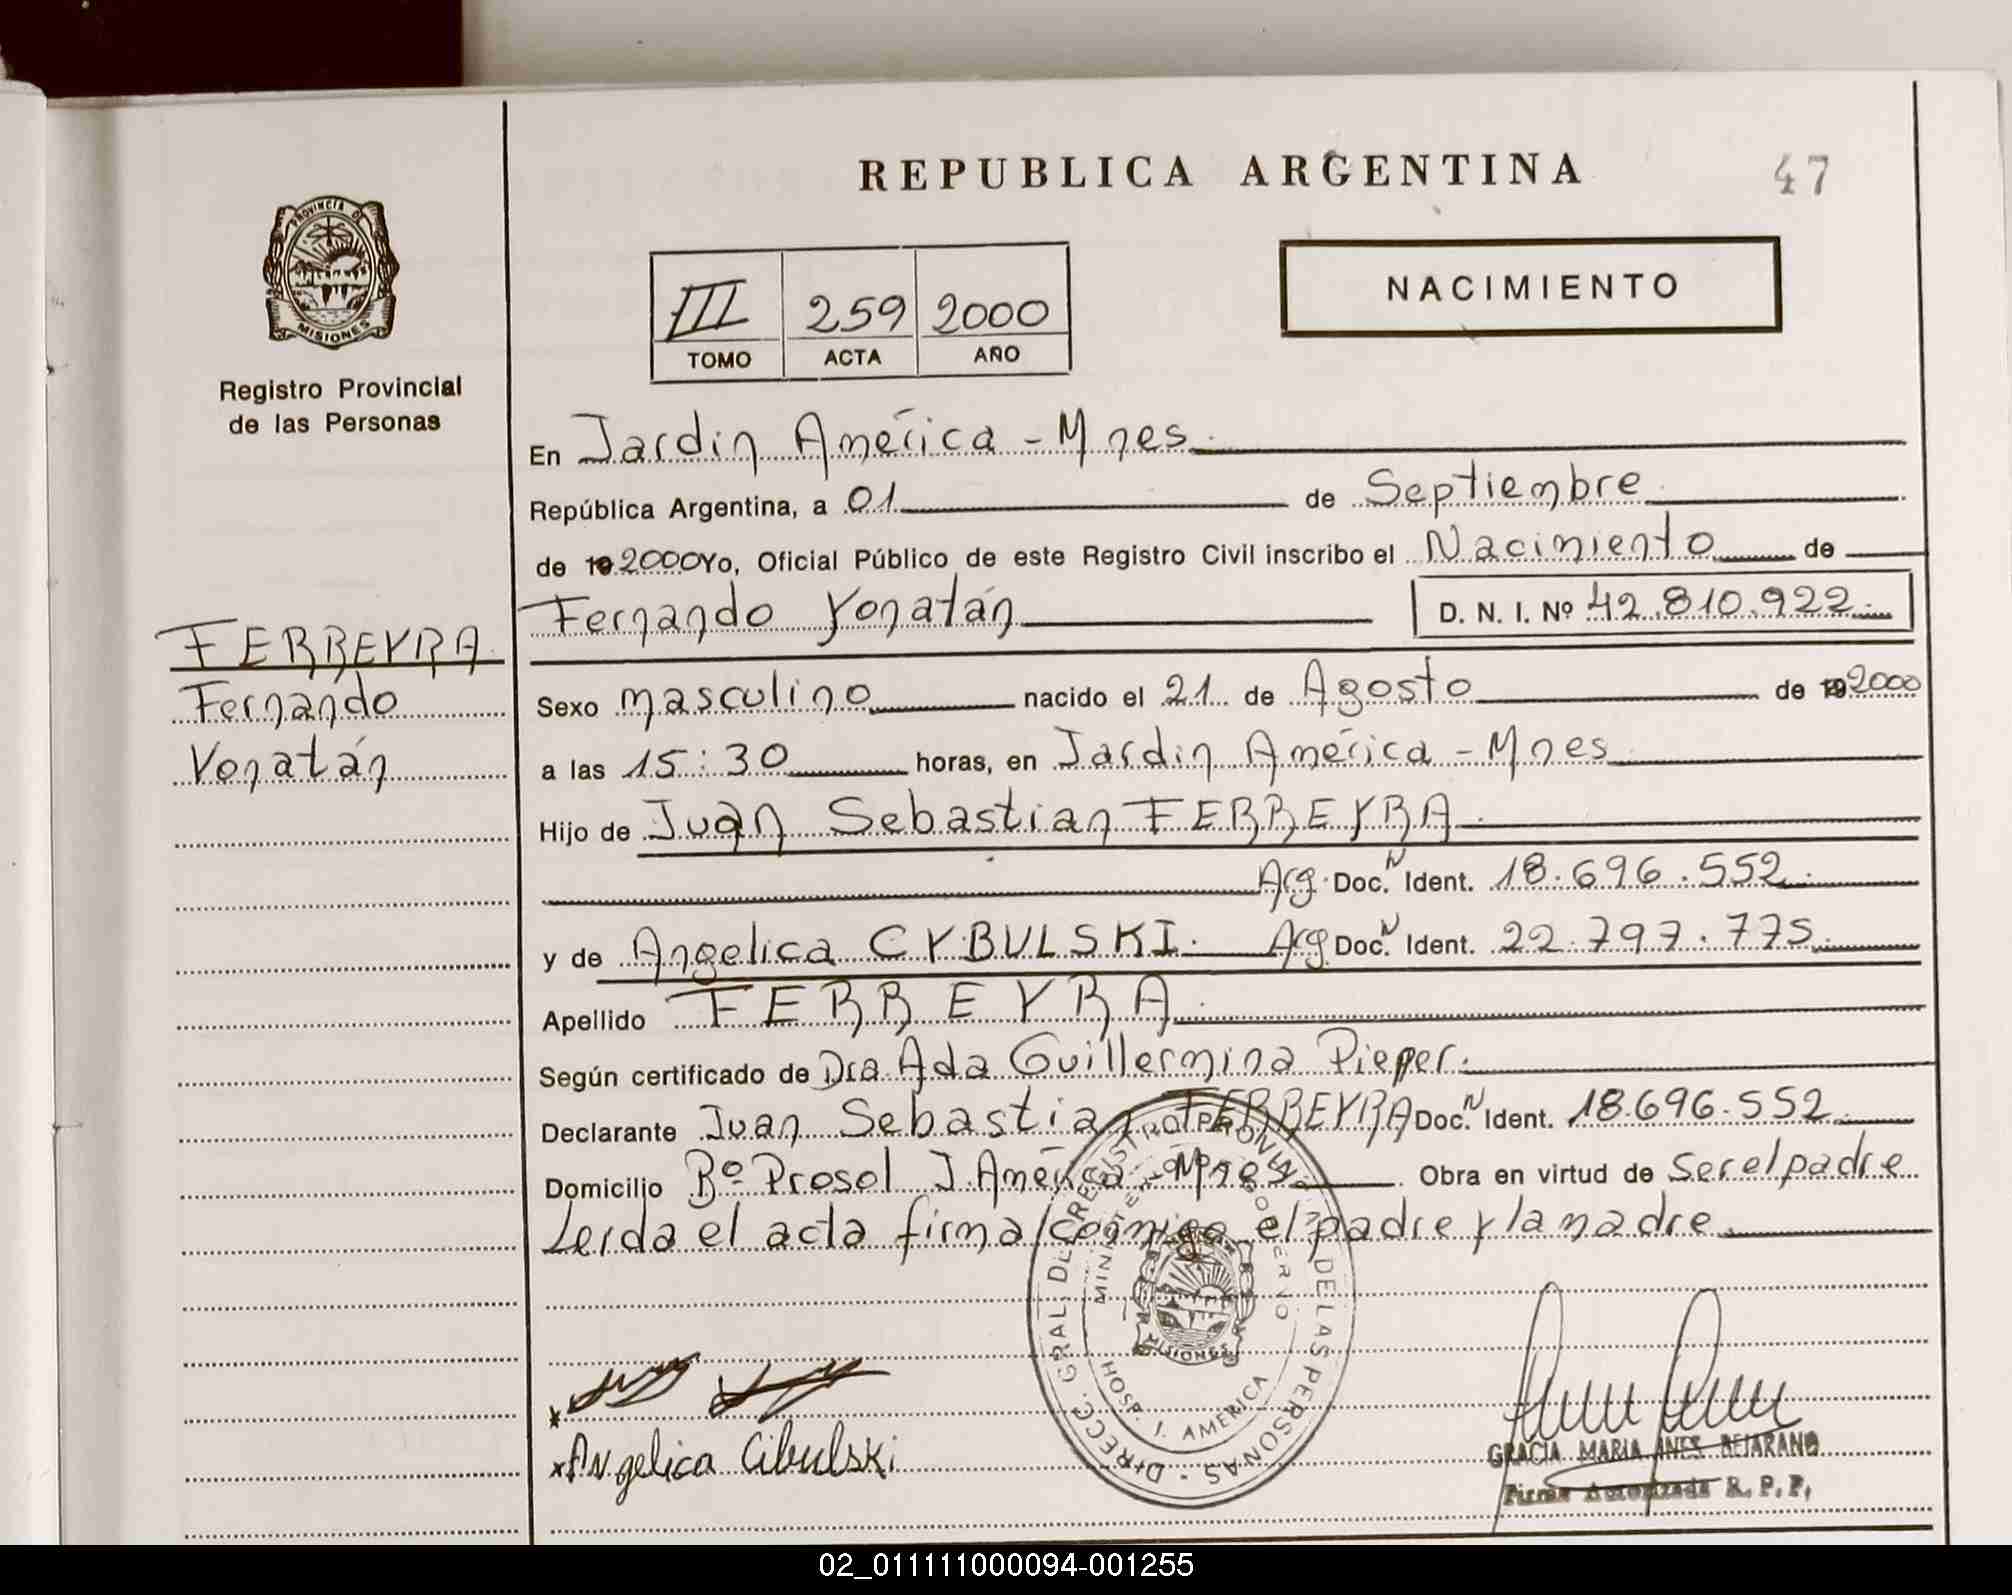 REPUBLICA ARGENTINA
47
PROVINCIA DE
MISIONES
Registro Provincial
de las Personas
III 259 2000
TOMO ACTA AÑO
NACIMIENTO
En Jardin América - Mnes.
República Argentina, a 01 de Septiembre
de 19 2000 Yo, Oficial Público de este Registro Civil inscribo el Nacimiento de
Fernando Yonatán D. N. I. Nº 42.810.922.
FERREYRA
Fernando
Yonatán
Sexo masculino nacido el 21 de Agosto de 19 2000
a las 15:30 horas, en Jardin América - Mnes
Hijo de Juan Sebastian FERREYRA
Arg. Doc. N Ident. 18.696.552.
y de Angelica CYBULSKI. Arg Doc. N Ident. 22.797.775.
Apellido FERREYRA
Según certificado de Dra Ada Guillermina Pieper.
Declarante Juan Sebastian FERREYRA Doc. N Ident. 18.696.552.
Domicilio Bº Prosol J. América - Mnes Obra en virtud de Ser el padre
Leida el acta firma conmigo el padre y la madre.
DIRECC. GRAL. DEL REGISTRO PROVINCIAL DE LAS PERSONAS
MINISTERIO DE GOBIERNO
MISIONES
HOSP. J. AMERICA
x
x Angelica Cibulski
GRACIA MARIA INES BEJARANO
Firma Autorizada R. P. P.
02_011111000094-001255